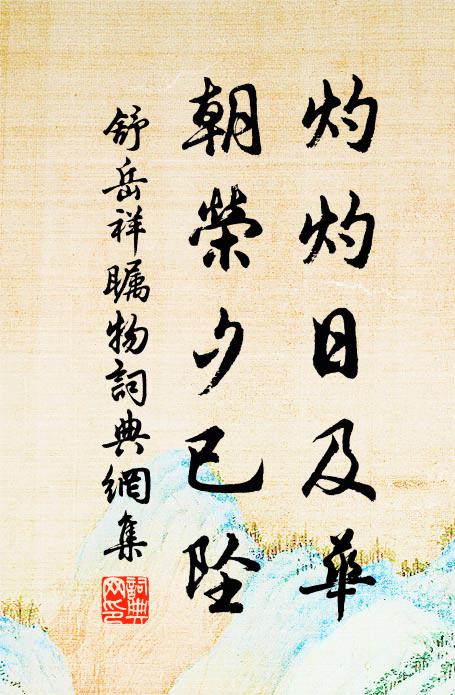 灼灼日及華
朝榮夕已墜
舒岳祥瞩物詞典網集
詞典网印